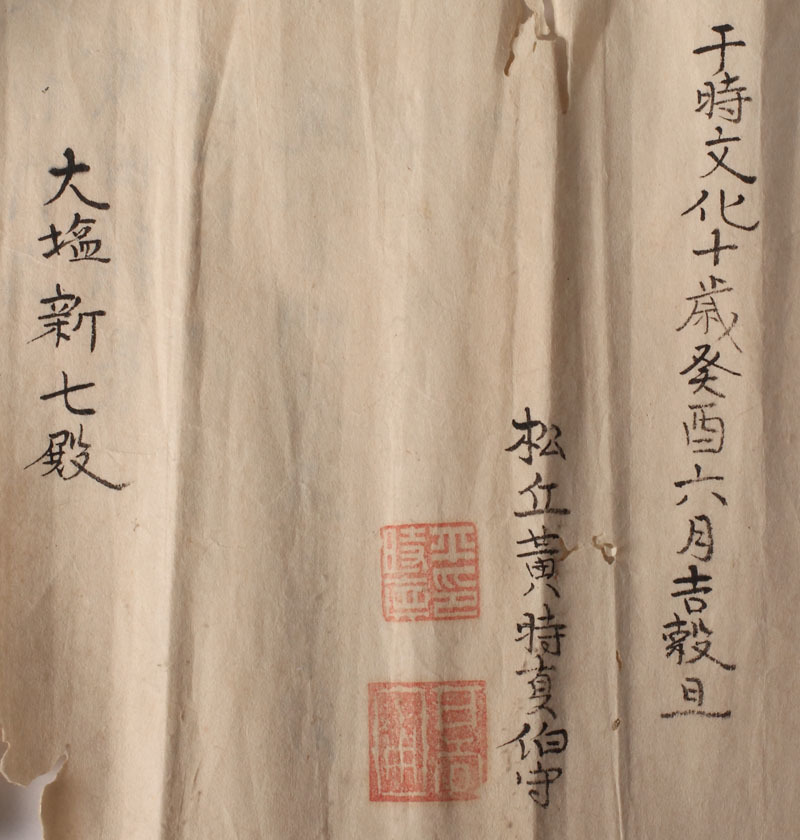 于時文化十歳癸酉六月吉穀旦
松丘黄時亨伯守
大塩新七殿